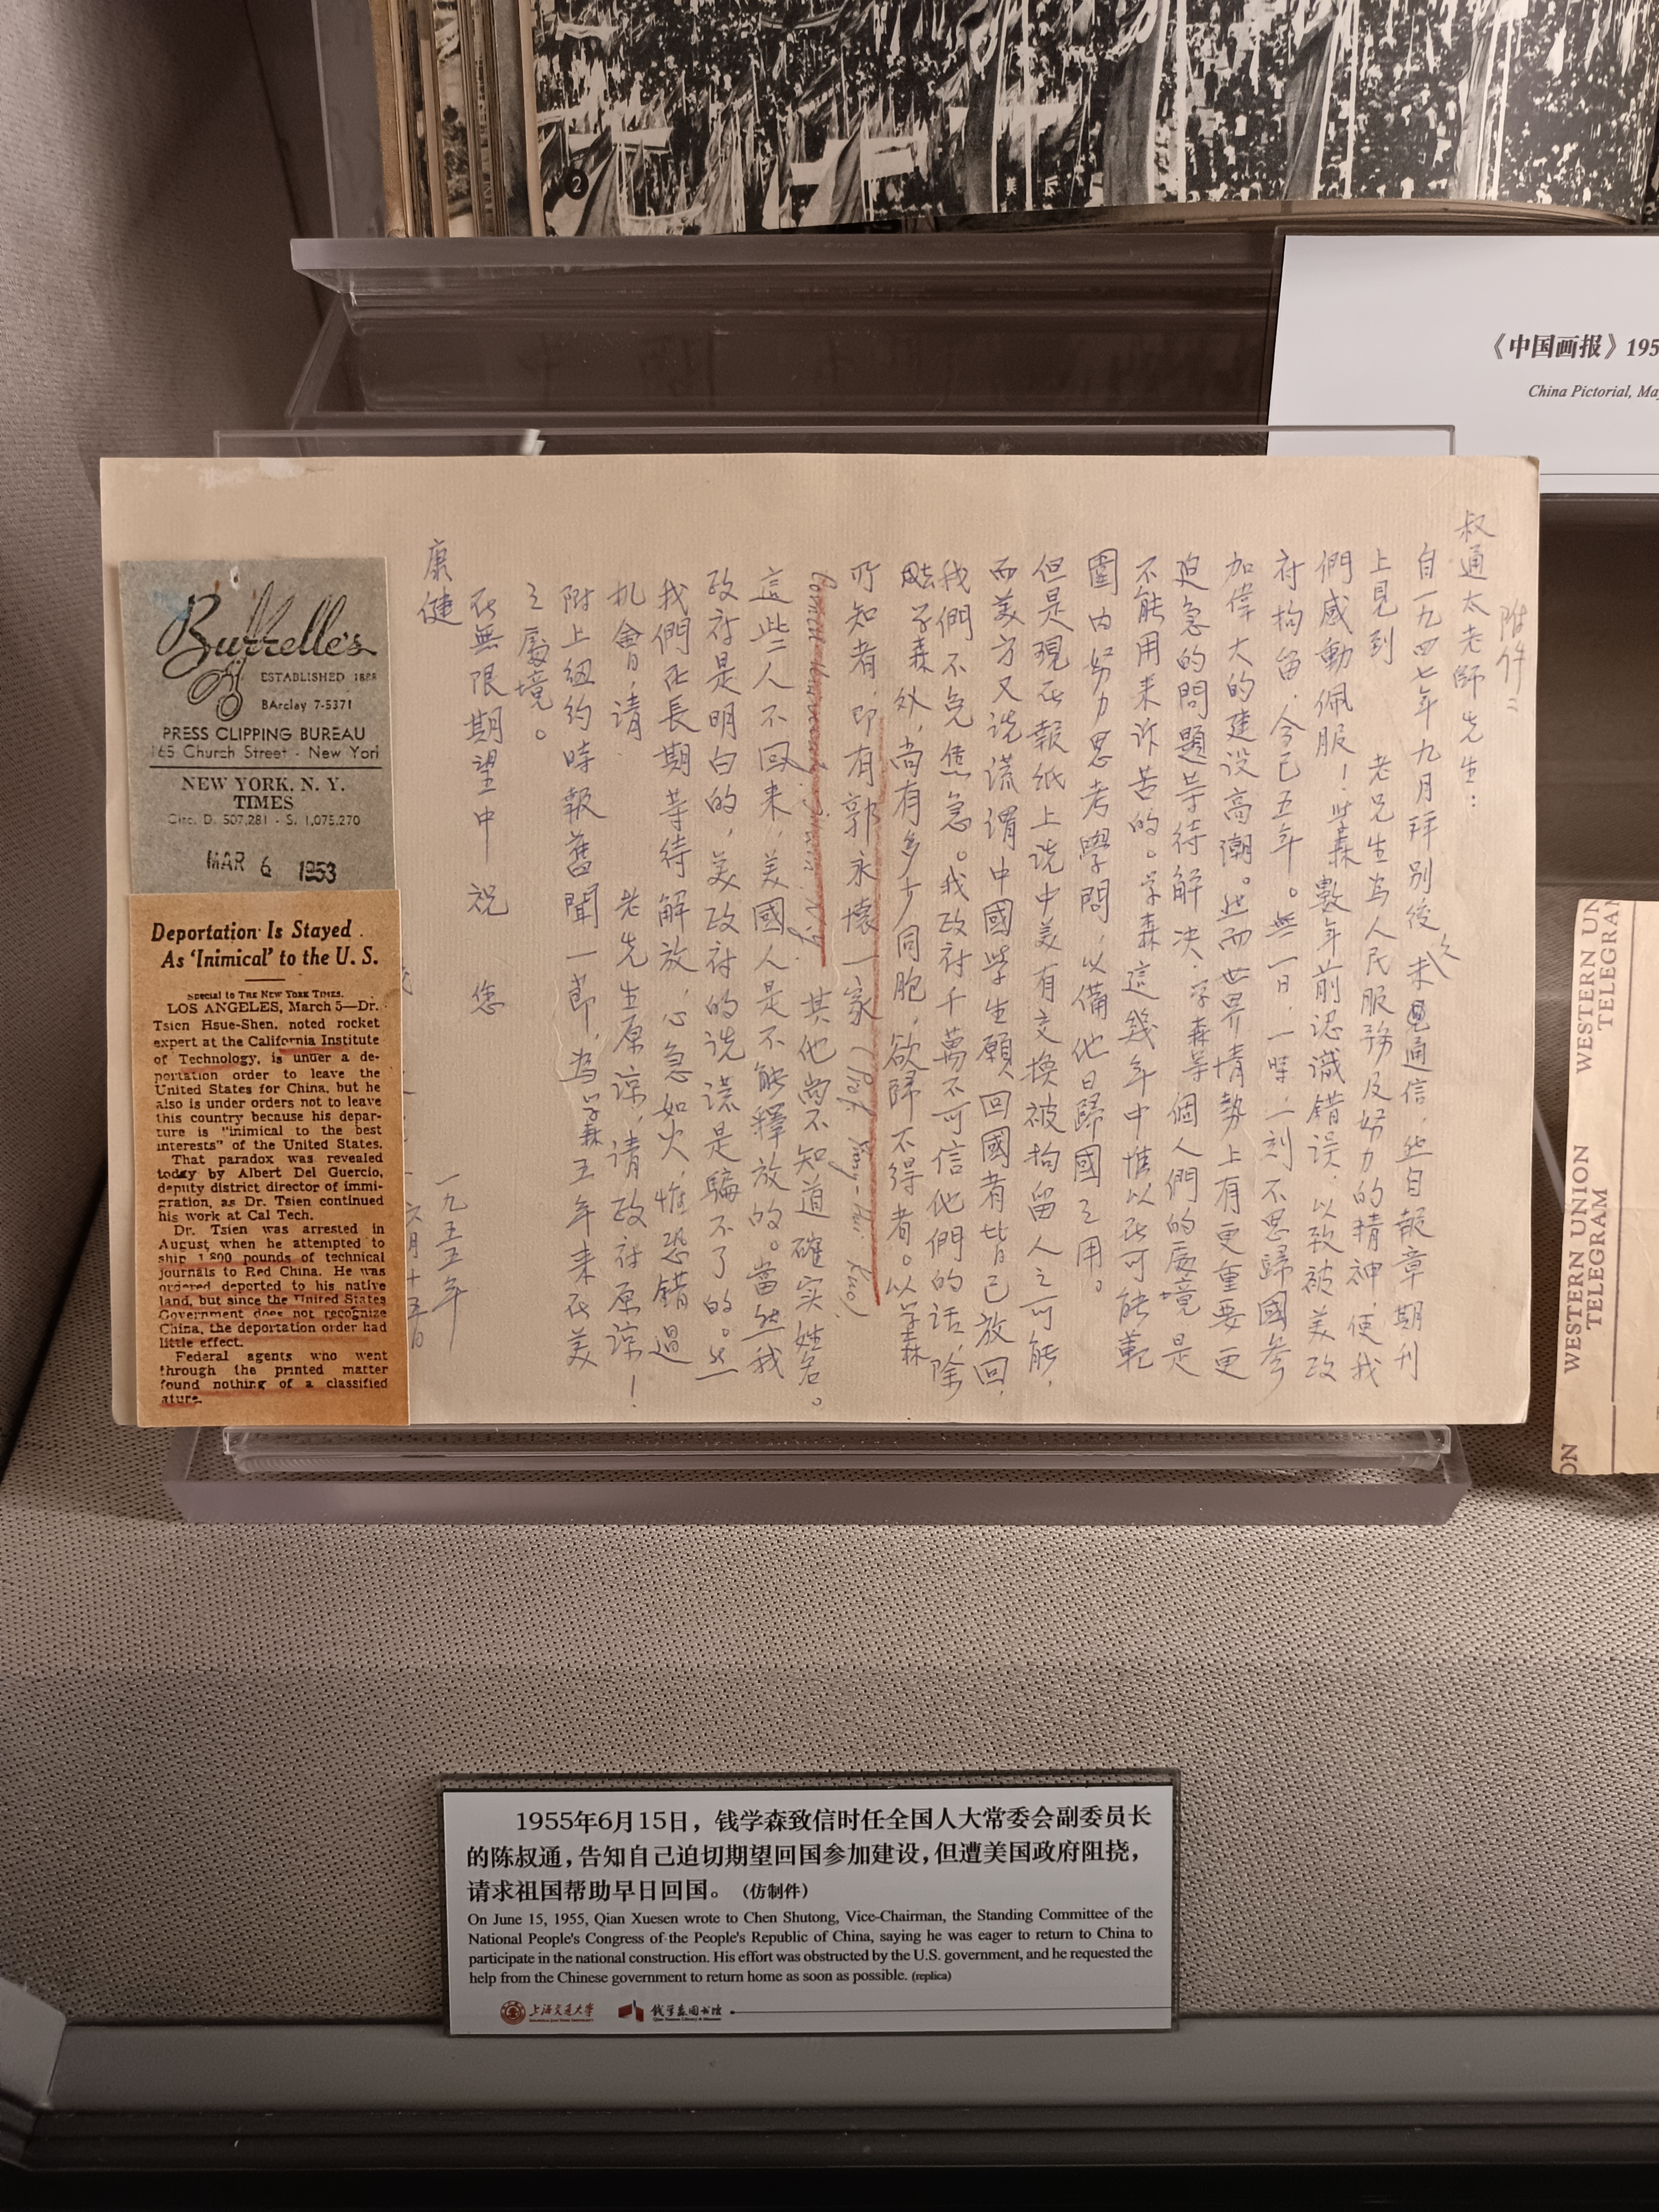 2
《中国画报》195
China Pictorial, Ma
附件二
叔通太老師先生：
自一九四七年九月拜别後久未通信，然自報章期刊
上見到 老先生為人民服務及努力的精神，使我
們感動佩服！学森數年前認識錯误，以致被美政
府拘留，今已五年。無一日，一時，一刻不思歸國參
加偉大的建設高潮。然而世界情勢上有更重要更
迫急的問題等待解決，学森等個人們的處境是
不能用来诉苦的。学森這幾年中惟以在可能範
圍内努力思考學問，以備他日歸國之用。
但是現在報紙上说中美有交換被拘留人之可能，
而美方又说谎谓中國學生願回國者皆已放回，
我們不免焦急。我政府千萬不可信他們的話，除
学森外，尚有多少同胞，欲歸不得者。以学森
所知者，即有郭永懷一家（Prof. Yung-Huai Kuo）
其他尚不知道確实姓名。
這些人不回来，美國人是不能釋放的。當然我
政府是明白的，美政府的说谎是騙不了的。然
我們在長期等待解放，心急如火，惟恐錯過
机會，请 老先生原谅，请政府原谅！
附上紐约時報舊聞一節，為学森五年来在美
之處境。
在無限期望中 祝 您
康健
一九五五年
六月十五日
Burrelle's
ESTABLISHED 1888
BArclay 7-5371
PRESS CLIPPING BUREAU
165 Church Street - New York
NEW YORK, N. Y.
TIMES
Circ. D. 507,281 - S. 1,075,270
MAR 6 1953
Deportation Is Stayed
As 'Inimical' to the U. S.
Special to THE NEW YORK TIMES.
LOS ANGELES, March 5—Dr.
Tsien Hsue-Shen, noted rocket
expert at the California Institute
of Technology, is under a de-
portation order to leave the
United States for China, but he
also is under orders not to leave
this country because his depar-
ture is "inimical to the best
interests" of the United States.
That paradox was revealed
today by Albert Del Guercio,
deputy district director of immi-
gration, as Dr. Tsien continued
his work at Cal Tech.
Dr. Tsien was arrested in
August when he attempted to
ship 1,800 pounds of technical
journals to Red China. He was
ordered deported to his native
land, but since the United States
Government does not recognize
China, the deportation order had
little effect.
Federal agents who went
through the printed matter
found nothing of a classified
ature.
WESTERN UN
TELEGRAM
WESTERN UNION
TELEGRAM
ON
1955年6月15日，钱学森致信时任全国人大常委会副委员长
的陈叔通，告知自己迫切期望回国参加建设，但遭美国政府阻挠，
请求祖国帮助早日回国。（仿制件）
On June 15, 1955, Qian Xuesen wrote to Chen Shutong, Vice-Chairman, the Standing Committee of the
National People's Congress of the People's Republic of China, saying he was eager to return to China to
participate in the national construction. His effort was obstructed by the U.S. government, and he requested the
help from the Chinese government to return home as soon as possible. (replica)
上海交通大学
SHANGHAI JIAO TONG UNIVERSITY
钱学森图书馆
Qian Xuesen Library & Museum